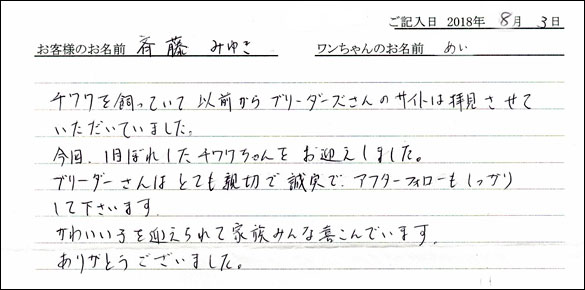 ご記入日 2018年 8月 3日
お客様のお名前 斉藤 みゆき ワンちゃんのお名前 めい
チワワを飼っていて以前からブリーダーズさんのサイトは拝見させて
いただいていました。
今回、1目ぼれしたチワワちゃんをお迎えしました。
ブリーダーさんはとても親切で誠実で、アフターフォローもしっかり
して下さいます。
かわいい子を迎えられて家族みんな喜こんでいます。
ありがとうございました。